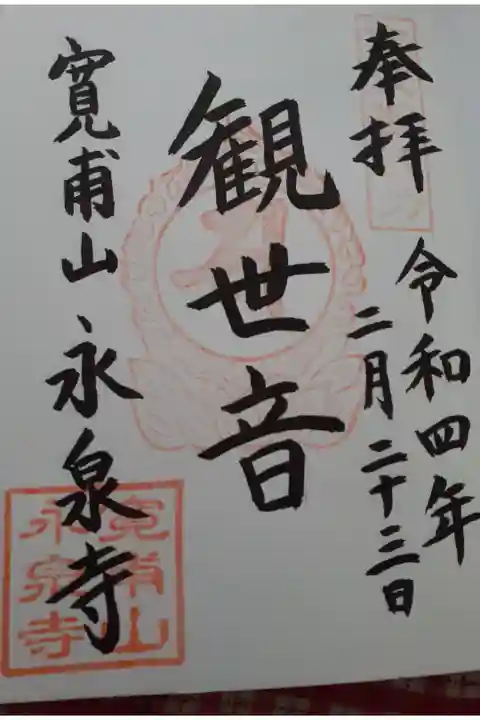 奉拝
令和四年
二月二十三日
観世音
寛甫山 永泉寺
寛甫山
永泉寺